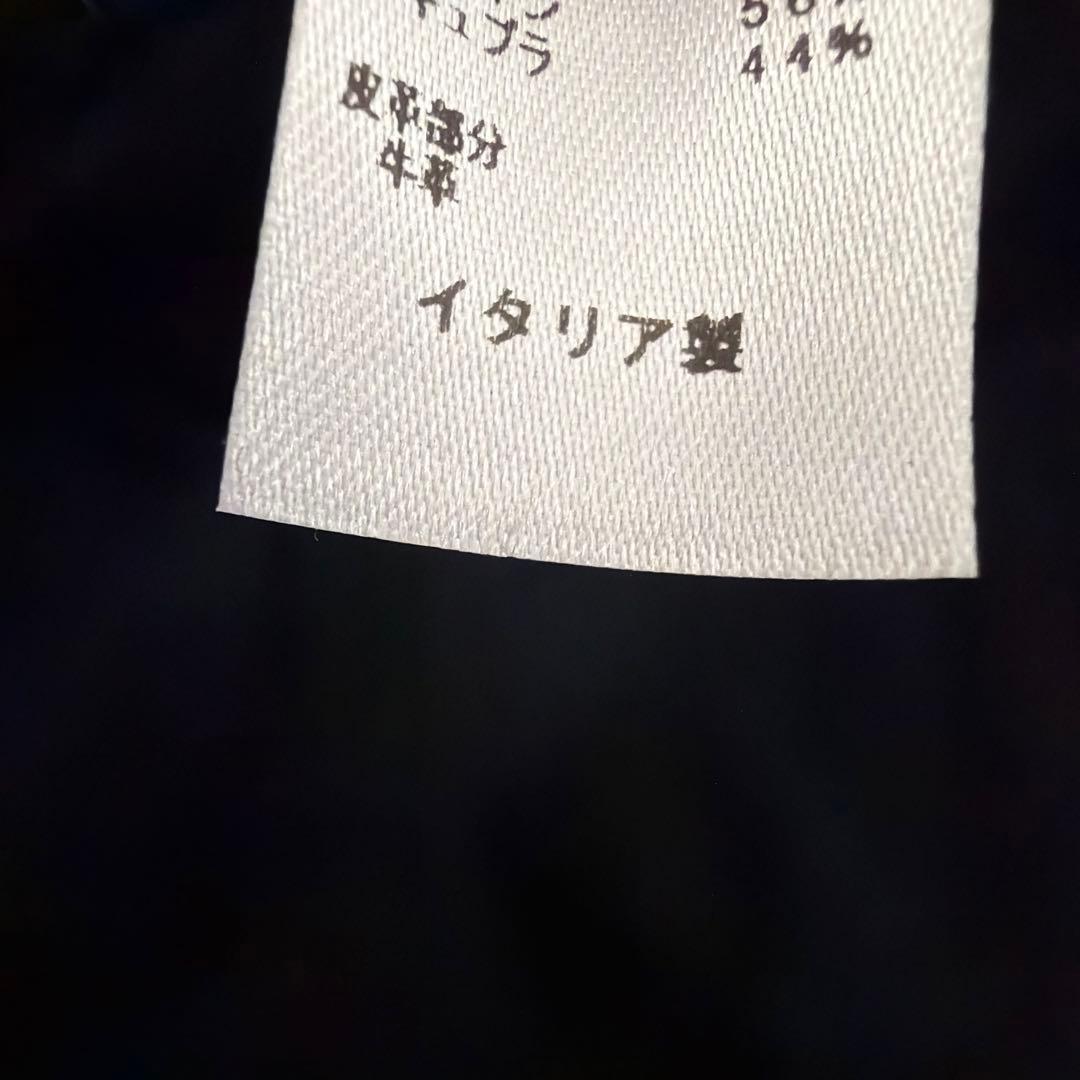 キュプラ 44%
皮革部分
牛革
イタリア製